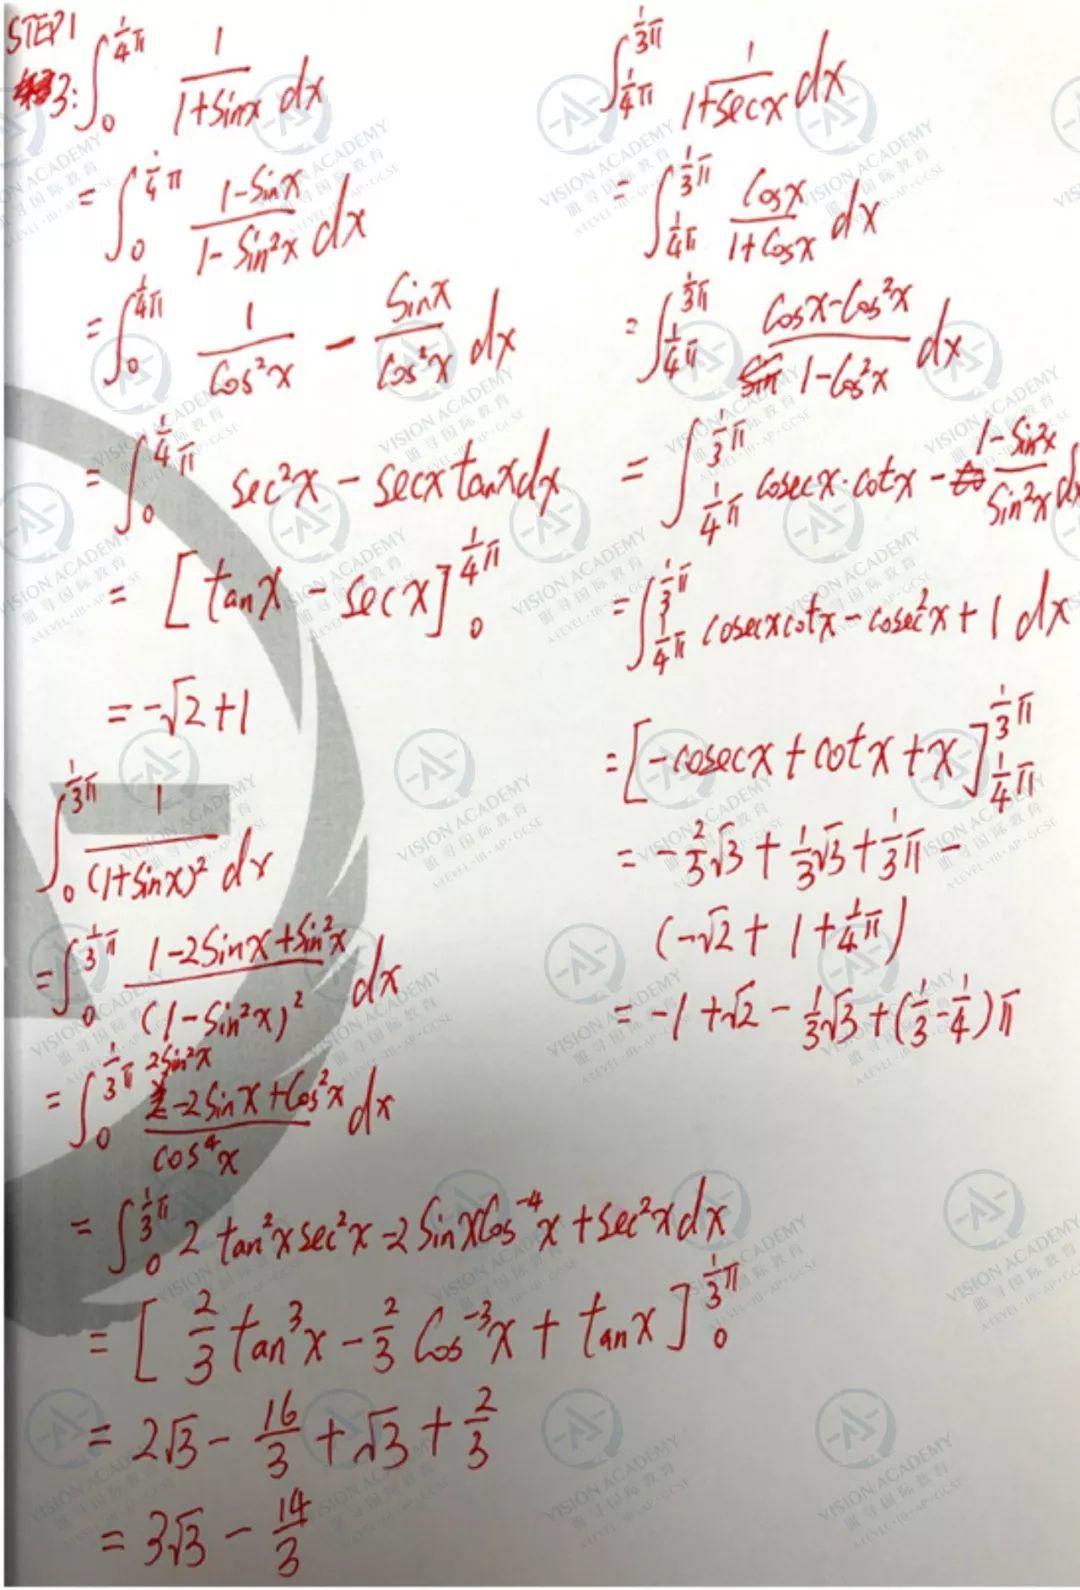 STEP1
3: ∫₀^{¼π} 1/(1+sinx) dx
= ∫₀^{¼π} (1-sinx)/(1-sin²x) dx
= ∫₀^{¼π} 1/cos²x - sinx/cos²x dx
= ∫₀^{¼π} sec²x - secx tanx dx
= [tanx - secx]₀^{¼π}
= -√2+1
∫₀^{⅓π} 1/(1+sinx)² dx
= ∫₀^{⅓π} (1-2sinx+sin²x)/(1-sin²x)² dx
= ∫₀^{⅓π} (2sin²x-2sinx+cos²x)/cos⁴x dx
= ∫₀^{⅓π} 2tan²x sec²x-2sinxcos⁻⁴x+sec²x dx
= [⅔tan³x - ⅔cos⁻³x + tanx]₀^{⅓π}
= 2√3 - 16/3 + √3 + 2/3
= 3√3 - 14/3
∫_{¼π}^{⅓π} 1/(1+secx) dx
= ∫_{¼π}^{⅓π} cosx/(1+cosx) dx
= ∫_{¼π}^{⅓π} (cosx-cos²x)/(1-cos²x) dx
= ∫_{¼π}^{⅓π} cosecx·cotx - (1-sin²x)/sin²x dx
= ∫_{¼π}^{⅓π} cosecxcotx-cosec²x+1 dx
= [-cosecx+cotx+x]_{¼π}^{⅓π}
= -⅔√3+⅓√3+⅓π-
(-√2+1+¼π)
= -1+√2-⅓√3+(⅓-¼)π
VISION ACADEMY
唯寻国际教育
A-LEVEL·IB·AP·GCSE